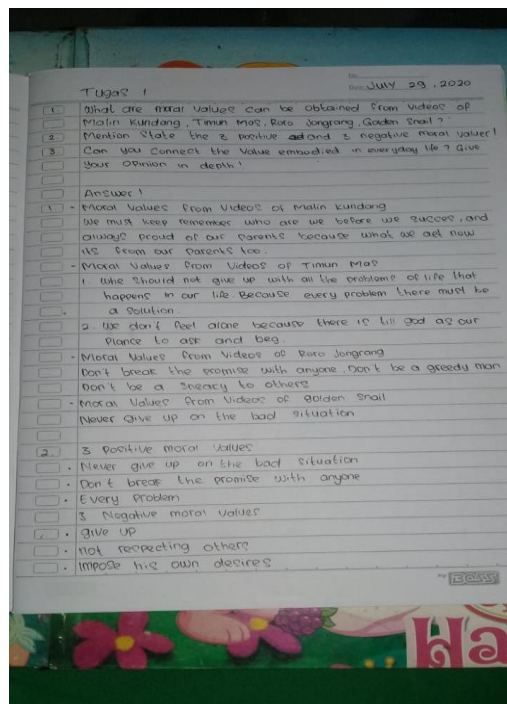 Tugas 1
Date: July 29, 2020
1 What are moral values can be obtained from videos of
Malin Kundang, Timun Mas, Roro Jongrang, Golden Snail?
2 Mention State the 3 positive and 3 negative moral values!
3 Can you connect the value embodied in everyday life? Give
your opinion in depth!
Answer!
1 - Moral Values from Videos of Malin Kundang
We must keep remember who are we before we succes, and
always proud of our parents because what we get now
its from our parents too.
- Moral Values from Videos of Timun Mas
1. Whe should not give up with all the problems of life that
happens in our life. Because every problem there must be
a solution.
2. We don't feel alone because there is till god as our
Plance to ask and beg.
- Moral Values from Videos of Roro Jongrang
Don't break the promise with anyone. Don't be a greedy man
Don't be a sneacy to others
- Moral Values from Videos of golden Snail
Never give up on the bad situation
2 3 Positive moral values
• Never give up on the bad situation
• Don't break the promise with anyone
• Every Problem
3 Negative moral values
• give up
• not respecting others
• Impose his own desires
BOSS
Ha